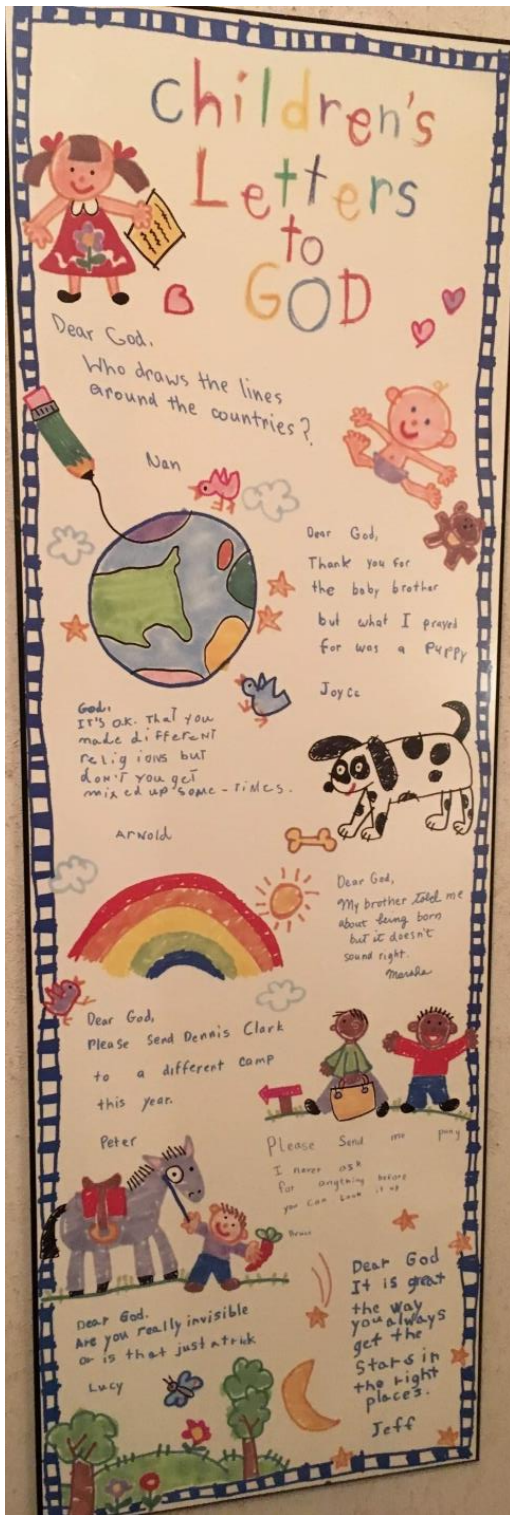 children's
Letters
to
GOD
Dear God.
Who draws the lines
around the countries?
Nan
Dear God,
Thank you for
the baby brother
but what I prayed
for was a puppy
Joyce
God.
IT'S OK. THAT YOU
made different
religions but
don't you get
mixed up some-times.
ARNOLD
Dear God,
My brother told me
about being born
but it doesn't
sound right.
Marsha
Dear God,
Please Send Dennis Clark
to a different camp
this year.
Peter
Please Send me pony
I never ask
for anything before
you can look it up
Bruce
Dear God.
Are you really invisible
or is that just a trick
Lucy
Dear God
It is great
the way
you always
get the
Stars in
the right
places.
Jeff